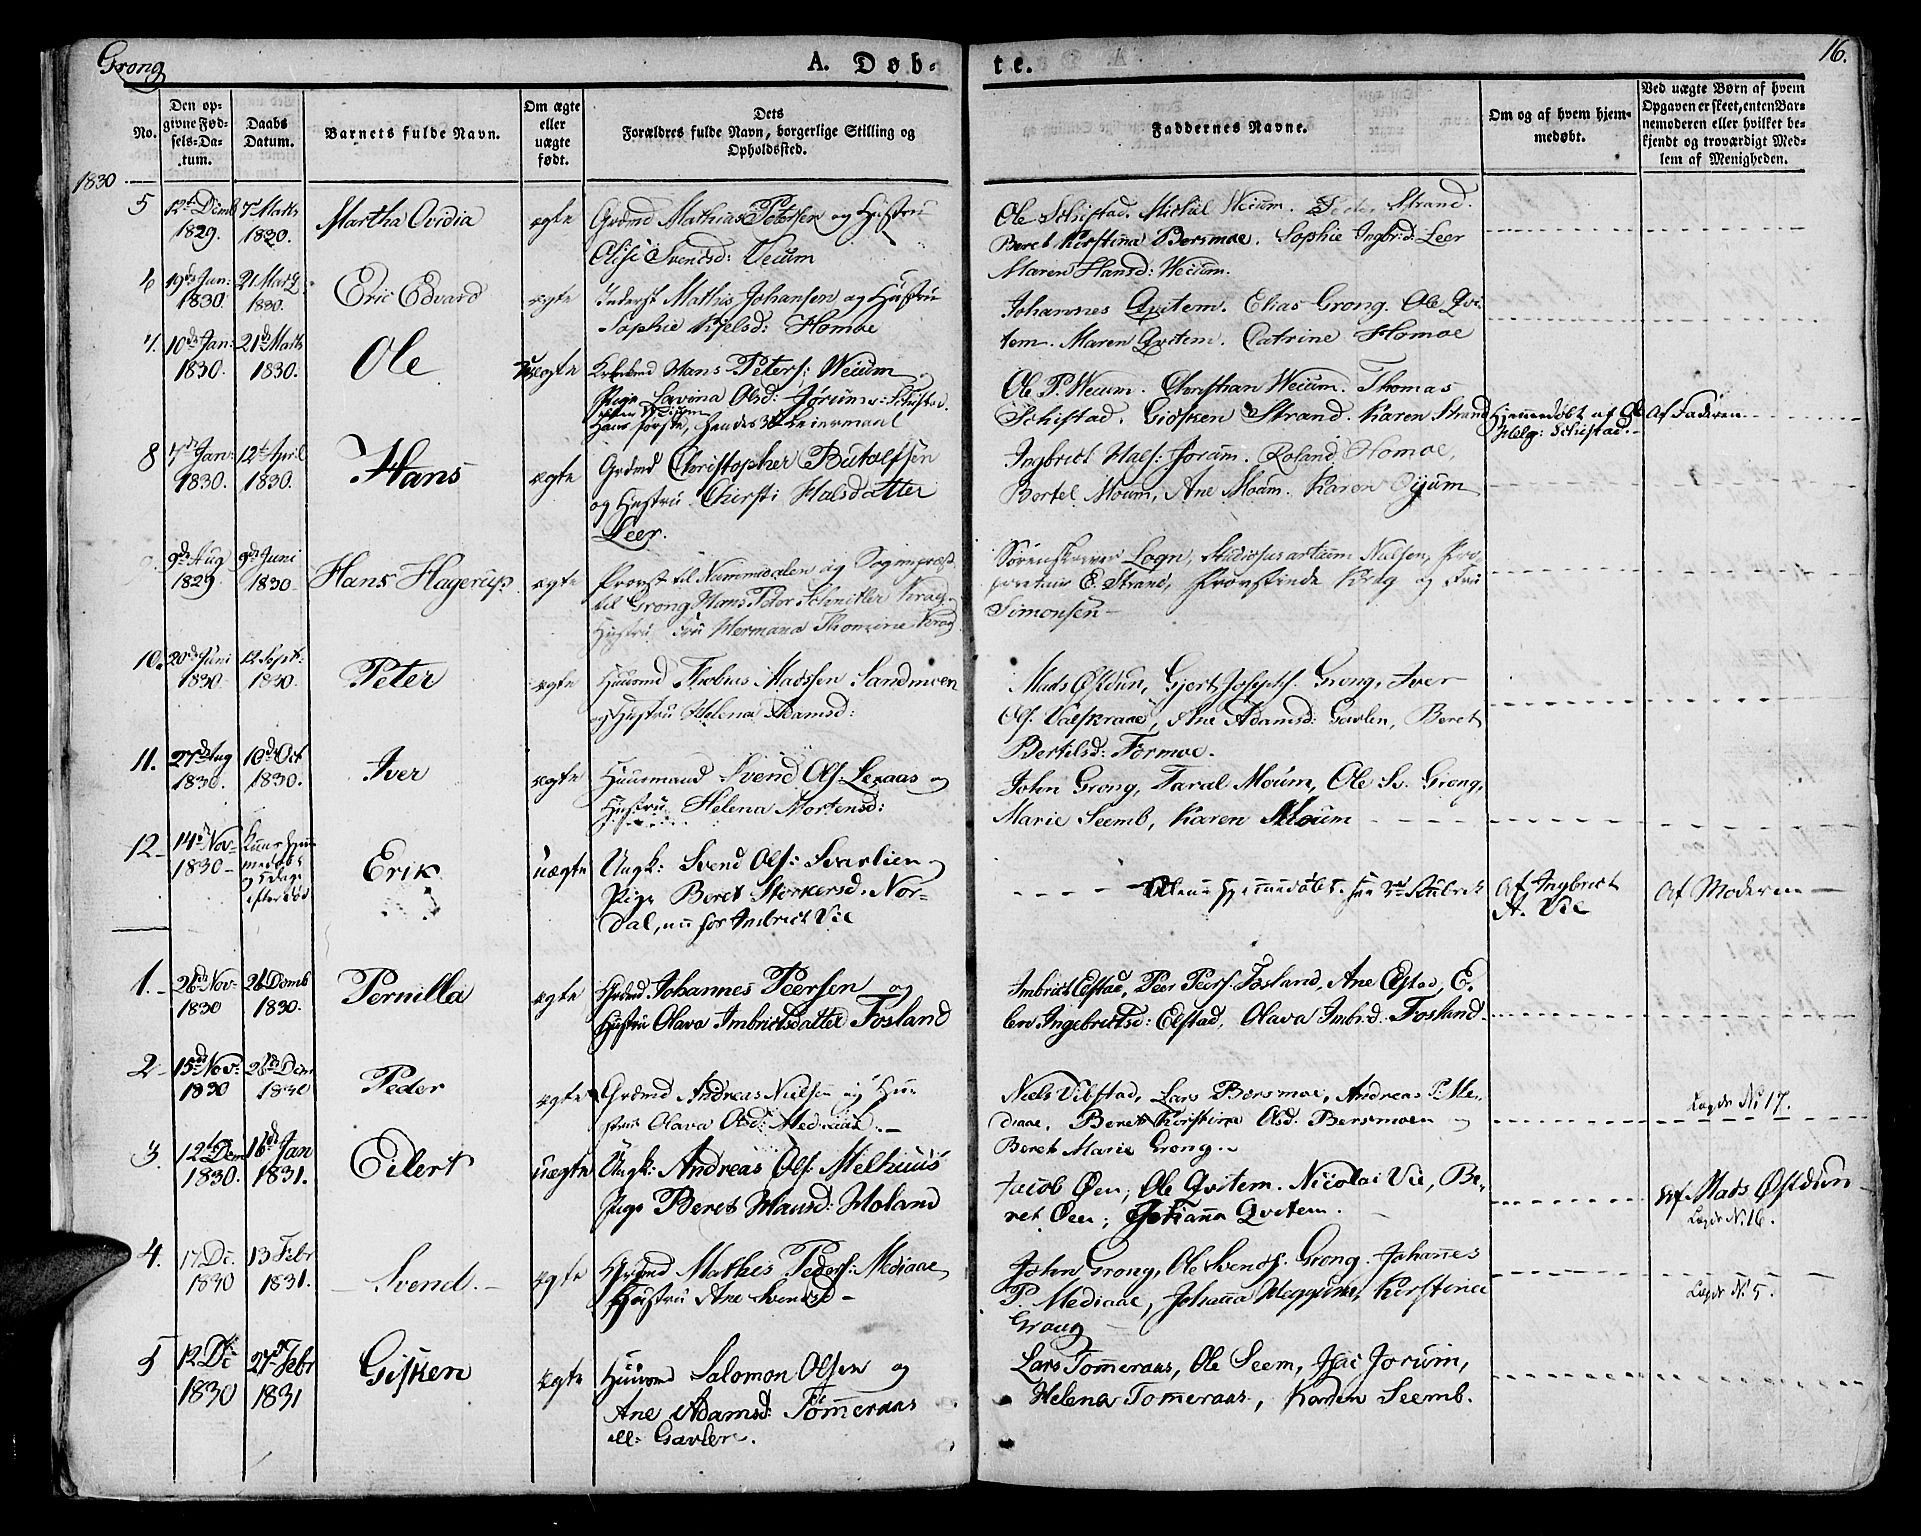 Grong
A. Døb-
te.
16.
No.
Den op-
givne Fød-
sels-Da-
tum.
Daabs
Datum.
Barnets fulde Navn.
Om ægte
eller
uægte
født.
Dets
Forældres fulde Navn, borgerlige Stilling og
Opholdssted.
Faddernes Navne.
Om og af hvem hjem-
medøbt.
Ved uægte Børn af hvem
Opgaven er skeet, enten Bar-
nemoderen eller hvilket be-
kjendt og troværdigt Med-
lem af Menigheden.
1830
5
12te Demb
1829.
7 Marts
1830.
Martha Ovidia
ægte
Grdmd Mathias Petersen og Hustru
Elise Svendsd: Veium
Ole Schistad. Michel Weium. Peder Strand.
Beret Kirstina Bersmoe. Sophie Ingbrd: Leer
Maren Hansd: Weium.
6
19de Jan:
1830
21 Martz
1830.
Eric Edvard
ægte
Inderst Mathis Johansen og Hustru
Sophie Kjelsd: Homoe
Johannes Qvitem. Elias Grong. Ole Qvi-
tem. Maren Qvitem. Catrine Homoe
7.
10de Jan:
1830.
21de Marts
1830.
Ole
uægte
Hans Peters: Weium
Pige Lavina Olsd: Jørum: Schistad.
Hans første, hendes 3die Leiermaal
Ole P. Weium. Christian Weium. Thomas
Schistad. Gidsken Strand. Karen Strand
Hjemmedøbt af Ole
Helg: Schistad.
Af Faderen
8
7de Jan:
1830.
12te April
1830.
Hans
ægte
Grdmd Christopher Butolfsen
og Hustru Chirsti Halsdatter
Leer.
Ingbrict Hals: Jorum. Roland Homoe,
Bertel Moum, Ane Moum. Karen Øyum
9de Aug
1829
9de Juni
1830
Hans Hagerup
ægte
Provst til Nummedalen og Sogneprest
til Grong Hans Peter Schnitler Krag
Hustru Fru Hermana Thomine Krag
Sorenskriver Logn, Studiosus artium Nielsen, Pro-
E. Strand, Provstinde Krag og Fru
Simonsen
10.
20de Juni
1830
12 Sept:
1830.
Peter
ægte
Huusmd Thobias Madssen Sandmoen
og Hustru Helena Adamsd:
Mads Østdun, Gjert Josephs. Grong, Iver
Ols. Valskraae, Ane Adamsd: Gavlen, Beret
Bertilsd: Formoe.
11.
27de Aug
1830.
10de Oct
1830.
Iver
ægte
Huusmand Svend Ols: Leraas og
Hustru Helena Mortensd:
John Grong, Taral Moum, Ole Sv. Grong,
Marie Seemb, Karen Moum
12
14de Nov
1830
Erik
uægte
Ungk: Svend Ols: Svarlien og
Pige Beret Storkersd. Nor-
dal, nu for Imbrict Vie
Af Ingbrict
A. Vie
Af Moderen
1.
26de Nov
1830
26 Demb
1830.
Pernilla
ægte
Grdmd Johannes Peersen og
Hustru Olava Imbrictsdatter Fosland
Imbrict Elstad, Peer Peers. Fosland, Ane Elstad, E-
len Ingebrictsd: Elstad, Olava Imbrd. Fosland
2
15de Nov:
1830
26de Dem
1830
Peder
ægte
Grdmd Andreas Nielsen og Hu-
stru Olava Olsd: Mediaae.
Niels Vibstad, Lars Bersmoe, Andreas P. Me-
diaae, Beret Kirstine Olsd. Bersmoen og
Beret Marie Grong.
Lægdr No 17.
3.
12te Dem
1830.
16de Jan
1831.
Eilert
uægte
Ungk: Andreas Ols: Melhuus
Pige Beret Hansd: Moland
Jacob Øen, Ole Qvitem. Nicolai Vie, Be-
ret Øen, Johanna Qvitem.
Af Mads Østdun
Lægdr No 16.
4.
17 De
1830
13 Febr
1831.
Svend.
ægte
Grdmd Mathes Peders: Mediaae
Hustru Ane Svendsd
John Grong, Ole Svends. Grong. Johannes
P. Mediaae, Johanna Heggum, Kirstine
Grong
Lægdr No 5.
5
12 De
1830
27de Febr
1831
Gisken
ægte
Huusmd Salomon Olsen og
Ane Adamsd: Tømmeraas
ell: Gavlen.
Lars Tømmeraas, Ole Seem, Isac Jorum,
Helena Tømmeraas, Karen Seemb.